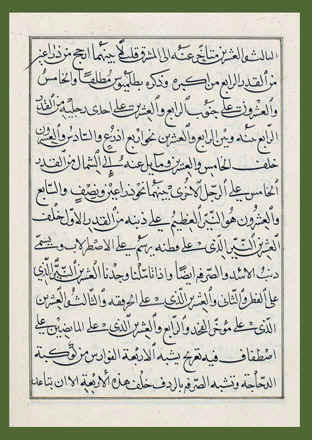 الثالث والعشرين متأخر عنه الى المشرق قليلا بينهما ارجح من ذراعين
من القدر الرابع من اكبره وذكره بطلميوس مطلقا والخامس
والعشرون على جنوب الرابع والعشرين على احدى رجليه من القدر
الرابع عنه وبين الرابع والعشرين نحو اربع اذرع والسادس والعشرون
خلف الخامس والعشرين ومايل عنه الى الشمال من القدر
الخامس على الرجل الاخرى بينهما نحو ذراعين ونصف والسابع
والعشرون هو النير العظيم على ذنبه من القدر الاول خلف
العشرين النير الذى على قطنه يرسم على الاصطرلاب ويسمى
ذنب الاسد والصرفة ايضا واذا تاملنا وجدنا العشرين النير الذى
على القطن والثانى والعشرين الذى على الحرقفة والثالث والعشرين
الذى على مؤخر الفخذ والرابع والعشرين الذى على الماضين على
اصطفاف فيه تعريج يشبه الاربعة الفوارس من كوكبة
الدجاجة وتشبه الصرفة بالردف خلف هذه الاربعة الا ان تباعد